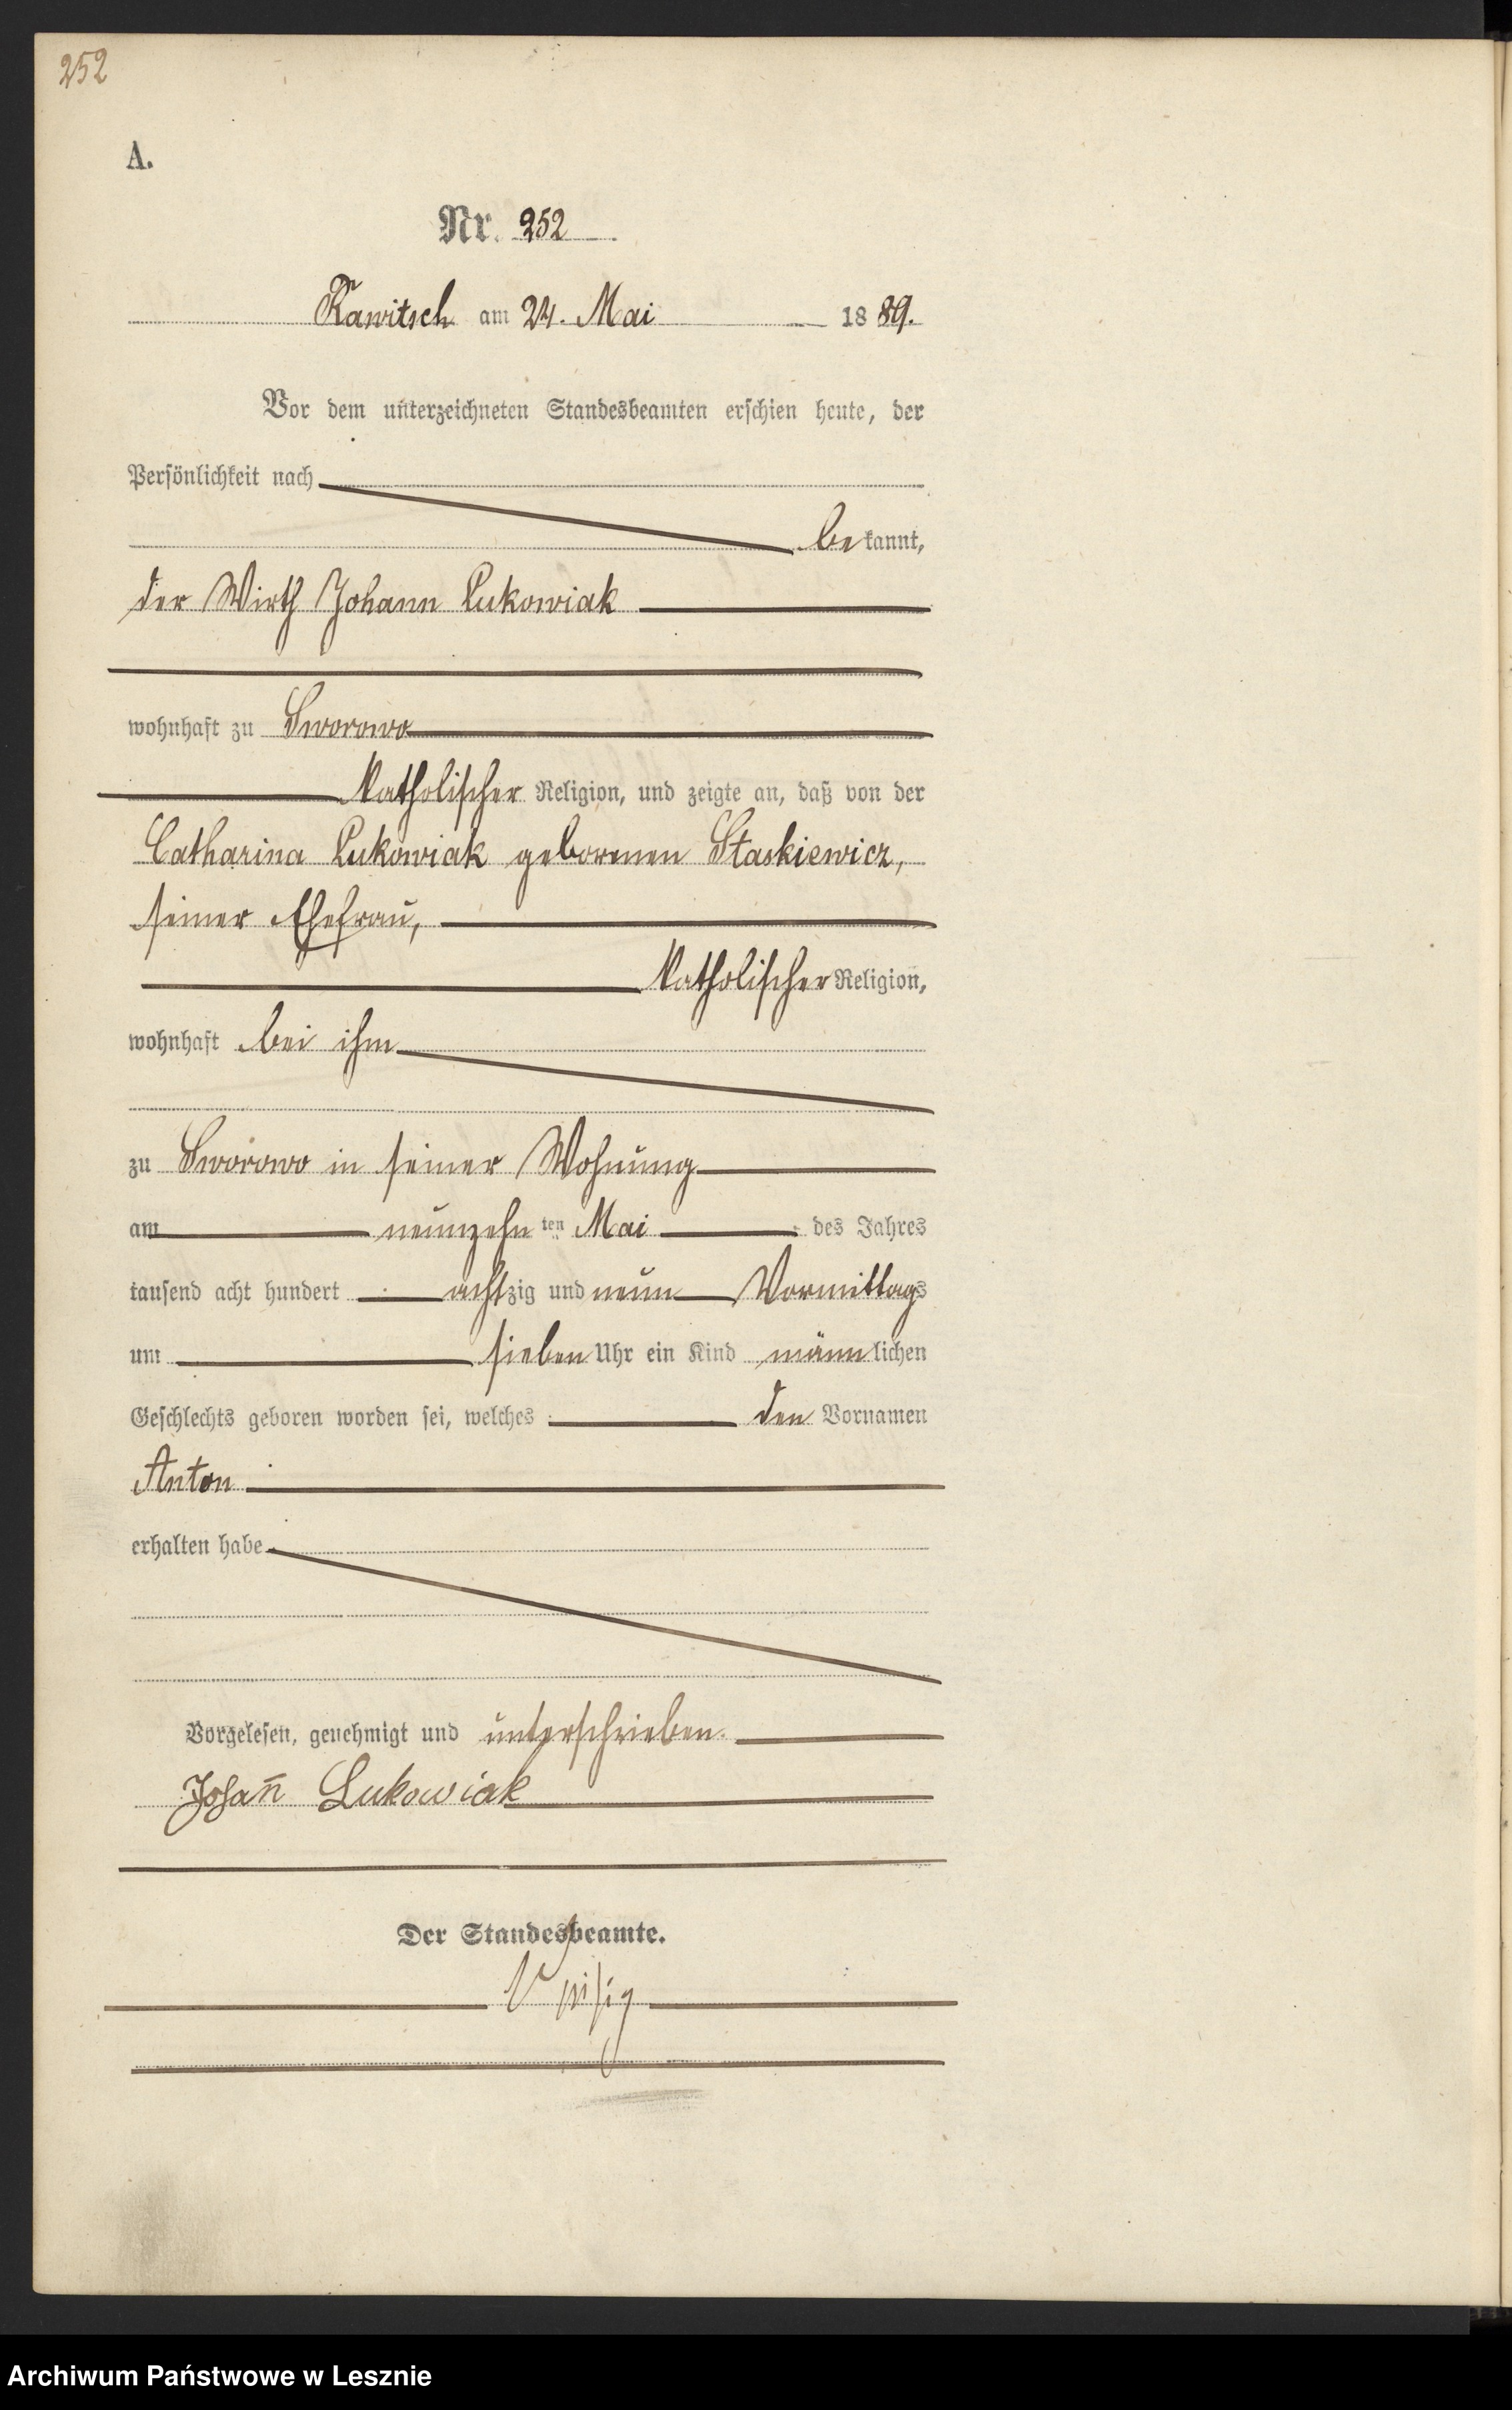 252
A.
Nr. 252
Rawitsch am 24. Mai 1889.
Vor dem unterzeichneten Standesbeamten erschien heute, der
Persönlichkeit nach
bekannt,
der Wirth Johann Lukowiak
wohnhaft zu Sworowo
katholischer Religion, und zeigte an, daß von der
Catharina Lukowiak geborenen Staskiewicz,
seiner Ehefrau,
katholischer Religion,
wohnhaft bei ihm
zu Sworowo in seiner Wohnung
am neunzehn ten Mai des Jahres
tausend acht hundert achtzig und neun Vormittags
um sieben Uhr ein Kind männlichen
Geschlechts geboren worden sei, welches den Vornamen
Anton
erhalten habe
Vorgelesen, genehmigt und unterschrieben.
Johan̄ Lukowiak
Der Standesbeamte.
Archiwum Państwowe w Lesznie